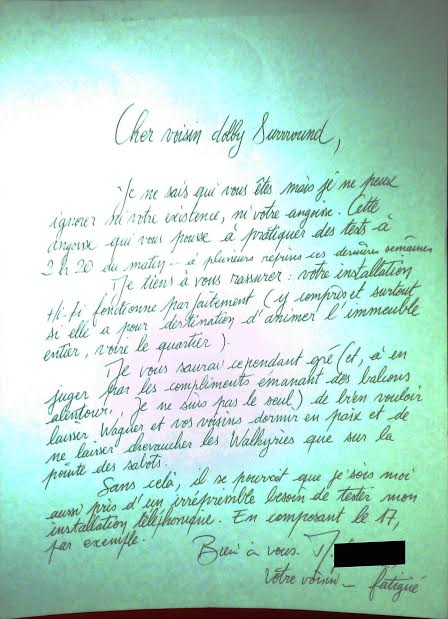 Cher voisin dolby Surrround,
Je ne sais qui vous êtes mais je ne peux
ignorer ni votre existence, ni votre angoisse. Cette
angoisse qui vous pousse à pratiquer des tests à
2 h 20 du matin - à plusieurs reprises ces dernières semaines
Je tiens à vous rassurer : votre installation
Hi-fi fonctionne parfaitement (y compris et surtout
si elle a pour destination d'animer l'immeuble
entier, voire le quartier).
Je vous saurai cependant gré (et, à en
juger par les compliments émanant des balcons
alentour, je ne suis pas le seul) de bien vouloir
laisser Wagner et vos voisins dormir en paix et de
ne laisser chevaucher les Walkyries que sur la
pointe des sabots.
Sans celà, il se pourrait que je sois moi
aussi pris d'un irrépressible besoin de tester mon
installation téléphonique. En composant le 17,
par exemple.
Bien à vous.
Votre voisin - fatigué